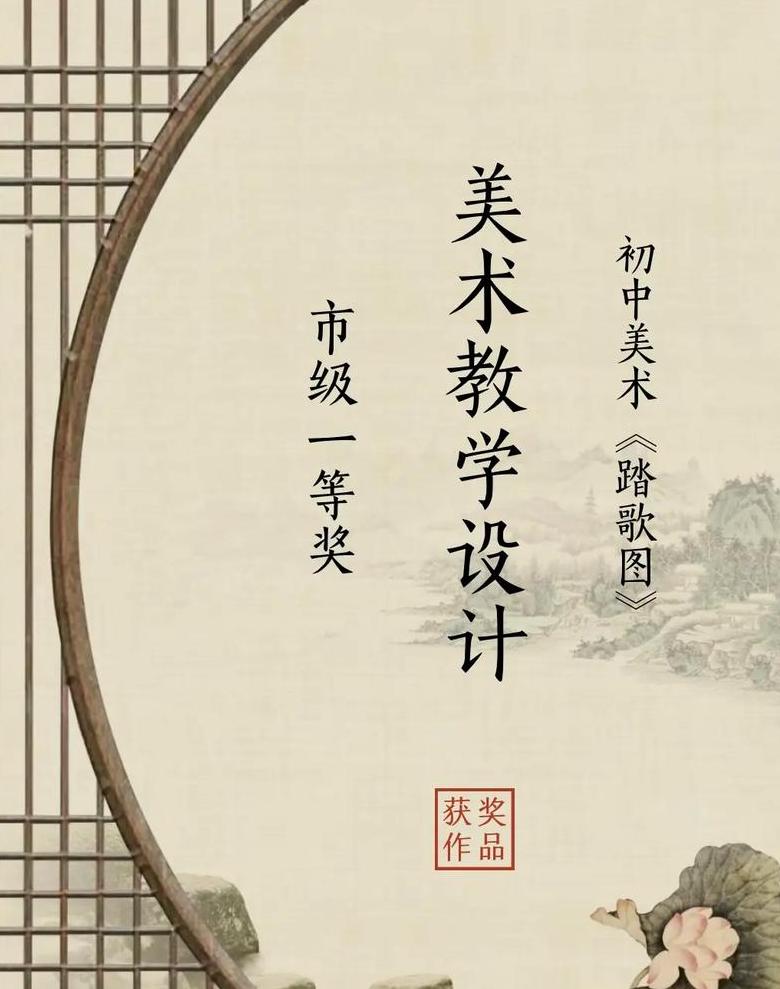 初中美术《踏歌图》
美术教学设计
市级一等奖
获奖
作品